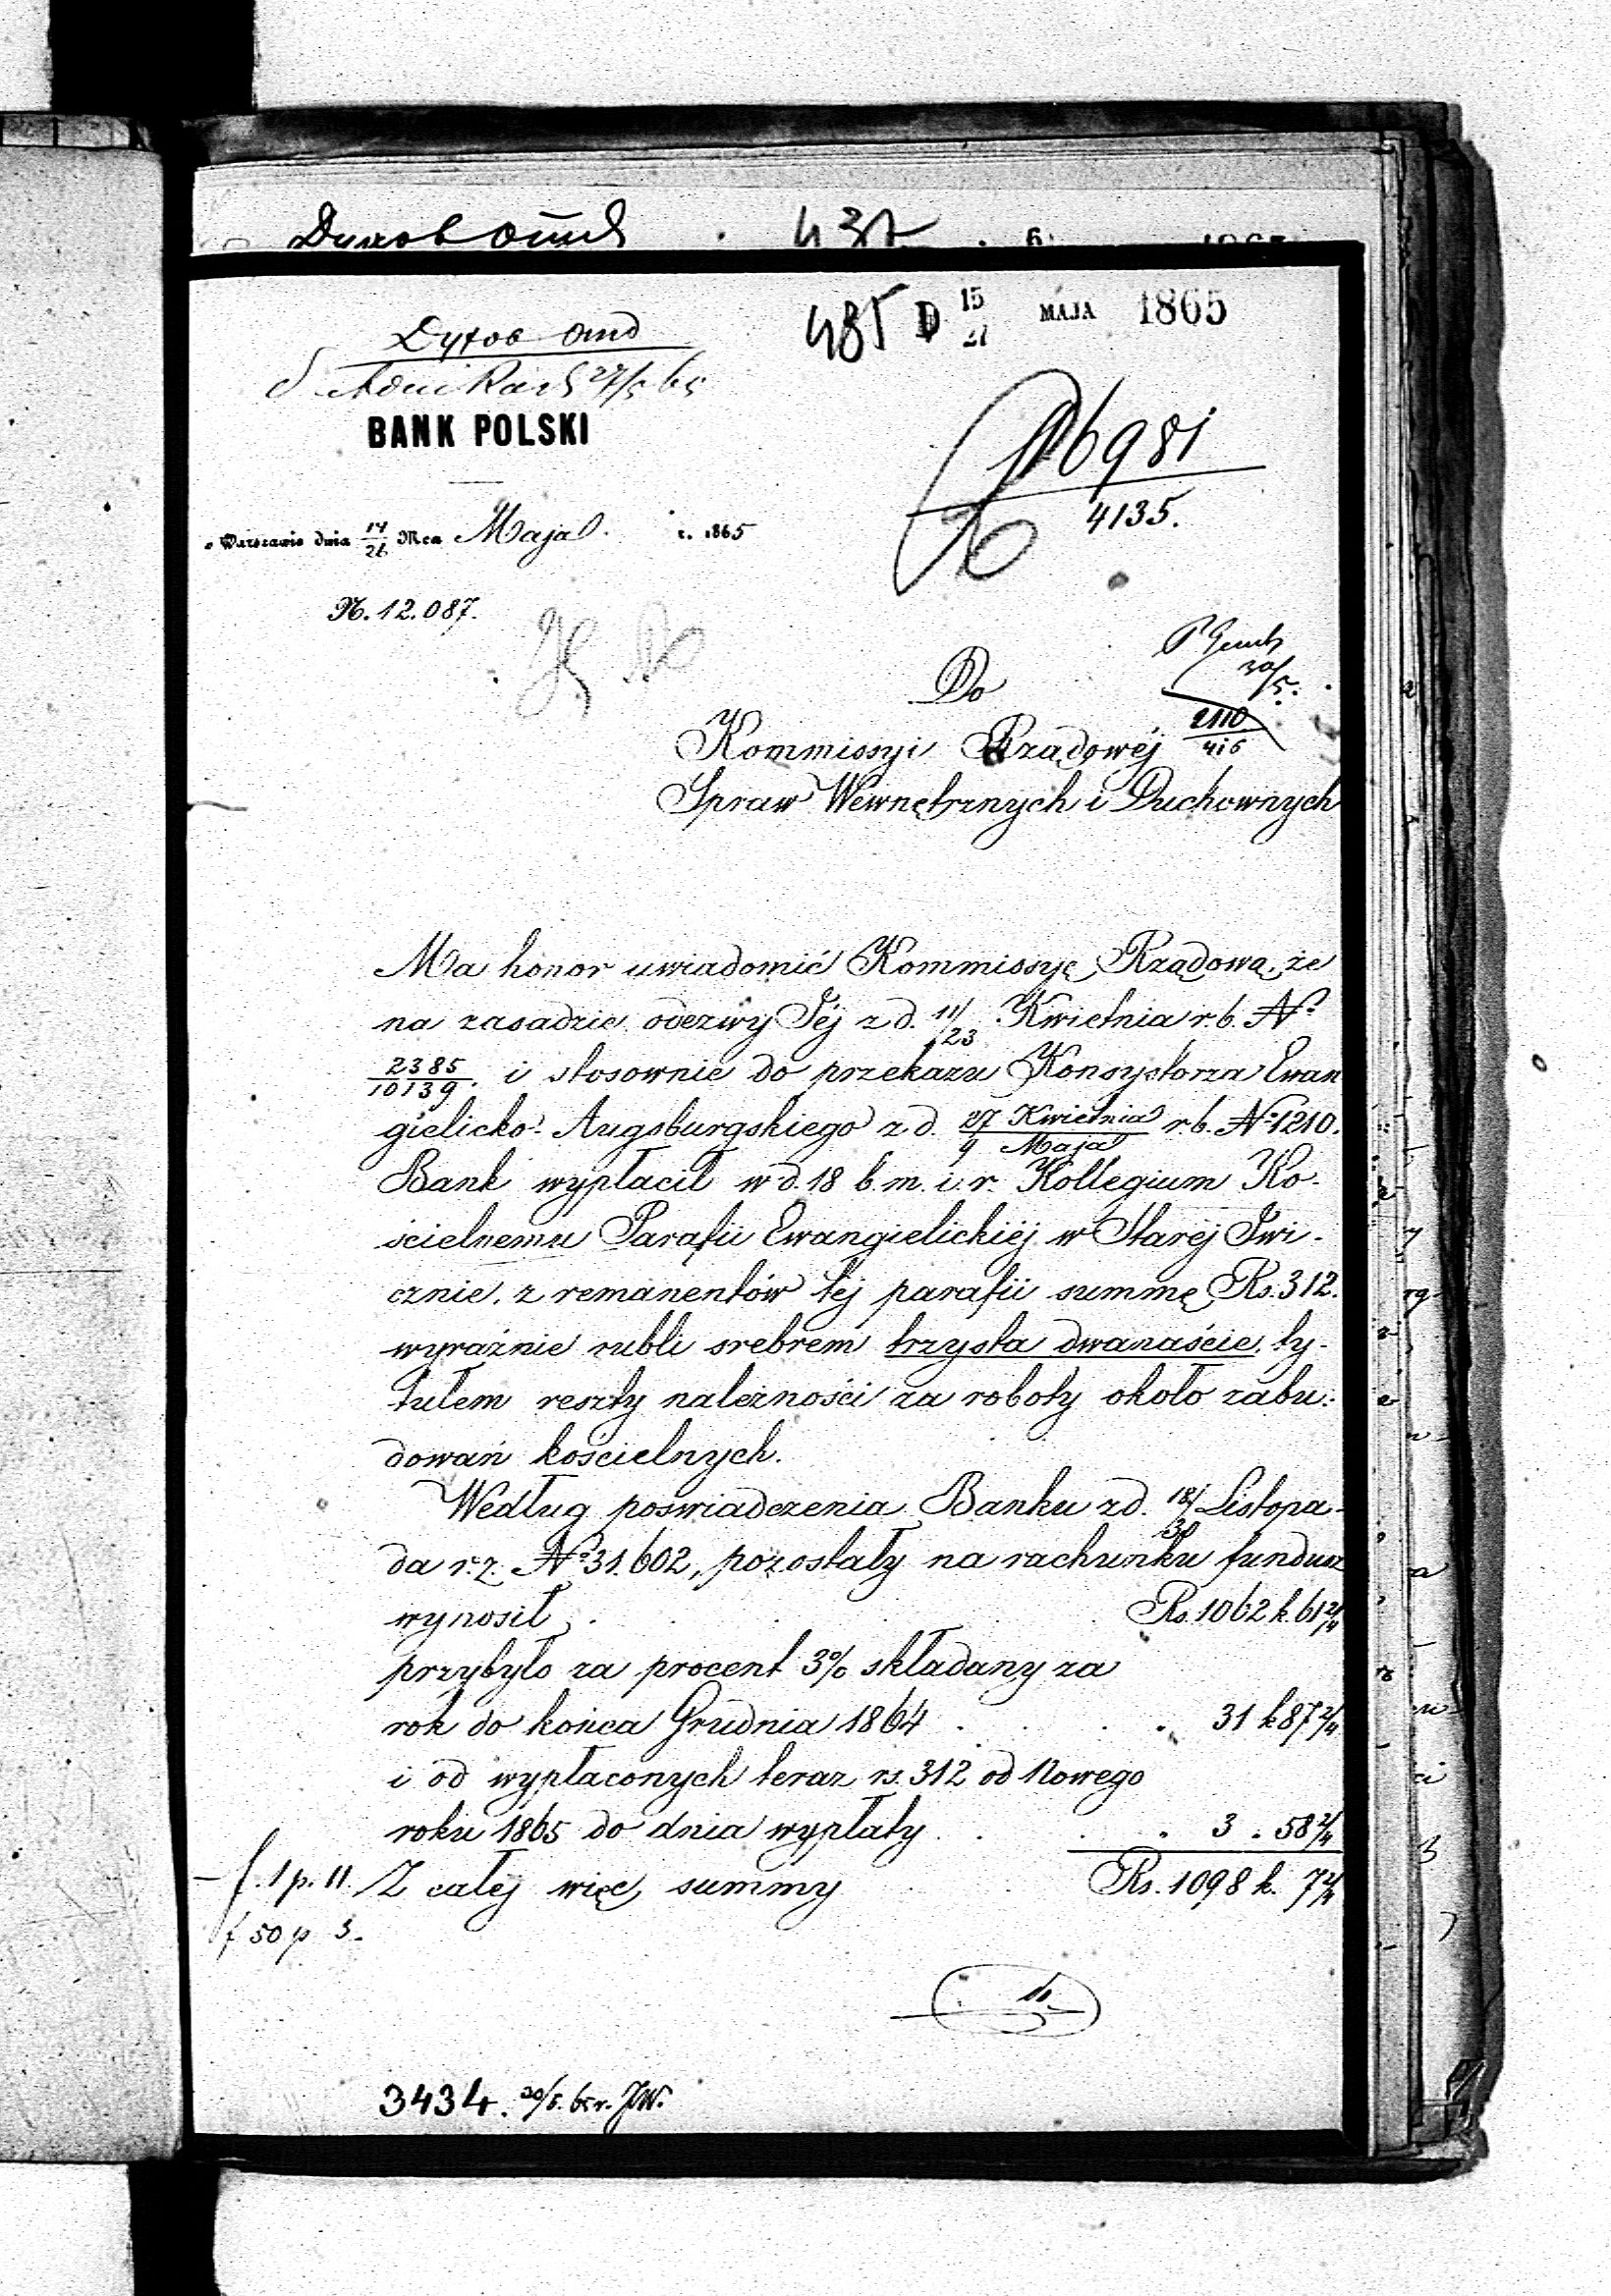 437
485 D 15/27 MAJA 1865
BANK POLSKI
D 6981
4135.
w Warszawie dnia 14/26 Mca Maja r. 1865
N. 12.087.
30/5.
Do
2110
416
Kommissyi Rządowéj
Spraw Wewnętrznych i Duchownych
Ma honor uwiadomić Kommissyę Rządową, że
na zasadzie odezwy Jéj z d. 11/23 Kwietnia r.b. No
2385/10139. i stosownie do przekazu Konsystorza Ewan
gielicko-Augsburgskiego z d. 27 Kwietnia/9 Maja r.b. No 1210.
Bank wypłacił w d. 18 b.m. i r. Kollegium Ko-
ścielnemu Parafii Ewangielickiéj w Starej Iwi-
cznie, z remanentów téj parafii summę Rs. 312.
wyraźnie rubli srebrem trzysta dwanaście, ty-
tułem reszty należności za roboty około zabu-
dowań kościelnych.
Według poświadczenia Banku z d. 18/30 Listopa-
da r.z. No 31.602, pozostały na rachunku fundusz
wynosił . . . . Rs. 1062 k. 61 2/4
przybyło za procent 3% składany za
rok do końca Grudnia 1864 . . . . " 31 k 87 2/4
i od wypłaconych teraz rs. 312 od Nowego
roku 1865 do dnia wypłaty . . . " 3 . 58 2/4
f. 1 p. 11. Z całéj więc summy Rs. 1098 k. 7 2/4
f 50 p 3.
3434. 20/5. 65 r. JW.